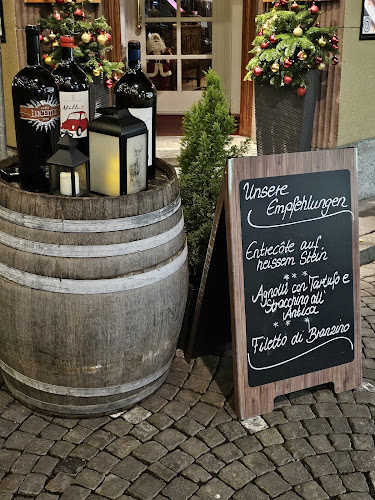 LUCENTE
Unsere
Empfehlungen
Entrecôte auf
heissem Stein
***
Agnolli con Tartufo e
Stracchino all'
Antica
***
Filetto di Branzino